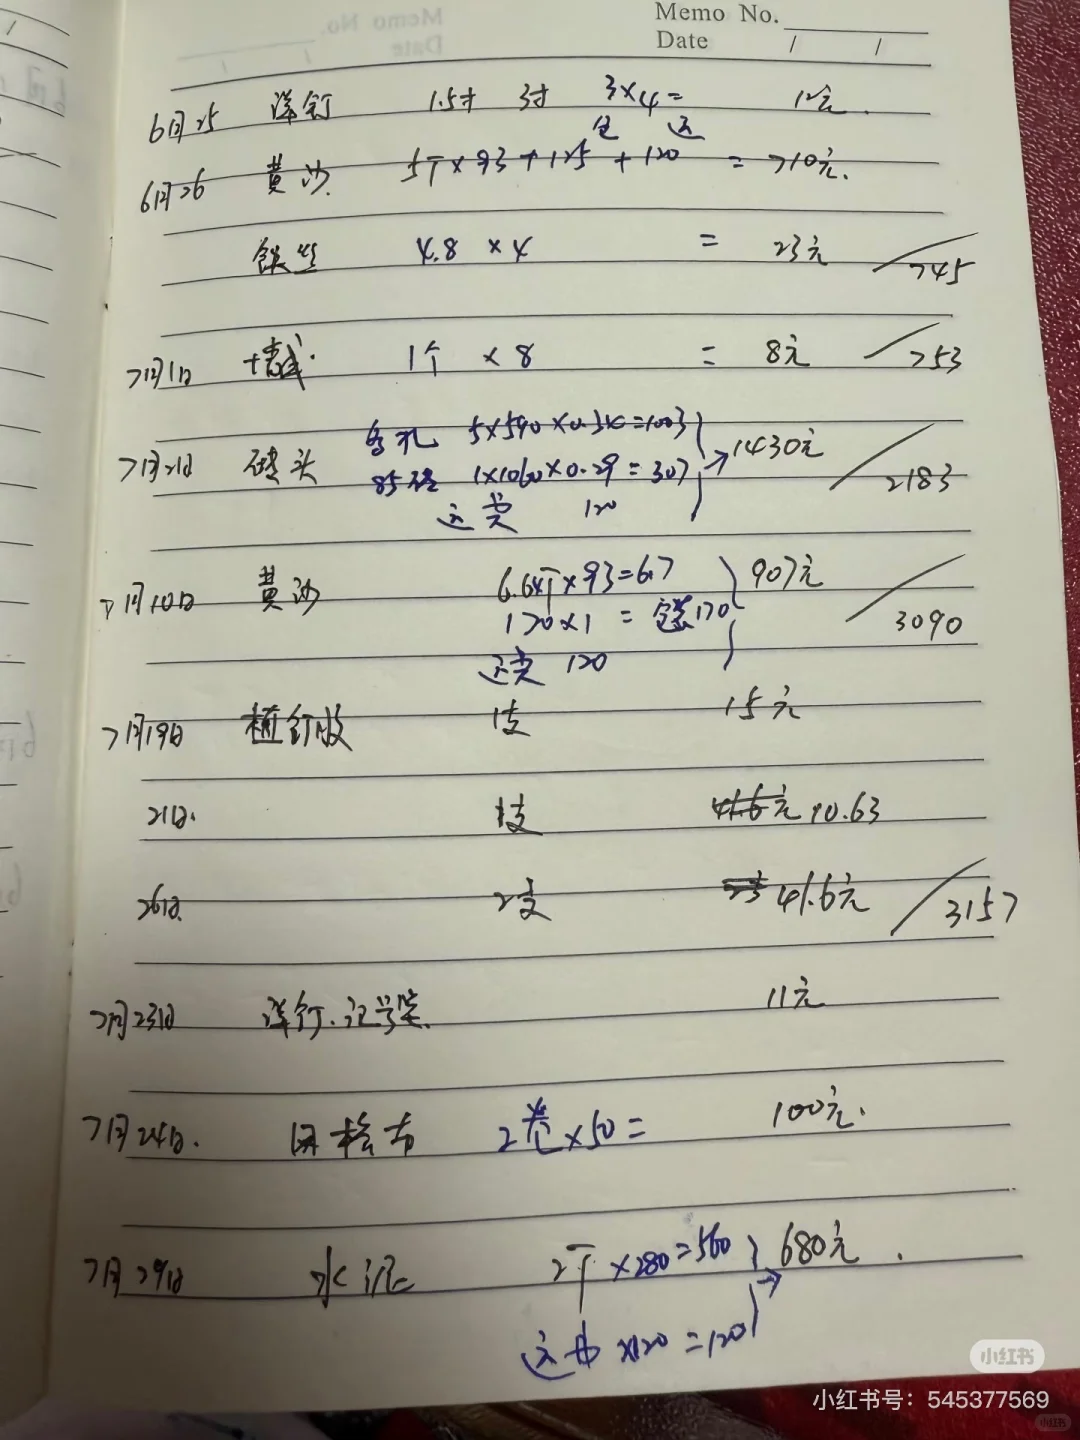 Memo No.
Date / /
6月25 洋钉 1.5寸 3寸 3×4= 12元.
包 运
6月26 黄沙. 5T×93+125+120 =710元.
铁丝 4.8×4 = 23元 / 745
7月1日 1个 ×8 = 8元 / 753
7月2日 砖头 多孔 5×590×0.34=1003
85砖 1×1060×0.29=307 → 1430元 / 2183
运费 120
7月10日 黄沙 6.64T×93=617 907元
170×1 = 170 / 3090
运费 120
7月19日 植钉胶 1支 15元
21日. 1支 41.6元 10.63
26日. 2支 41.6元 / 3157
7月23日 洋钉.记号笔. 11元
7月24日. 布 2卷×50= 100元.
7月29日 水泥 2T×280=560 680元.
运费×120=120 →
小红书
小红书号：545377569